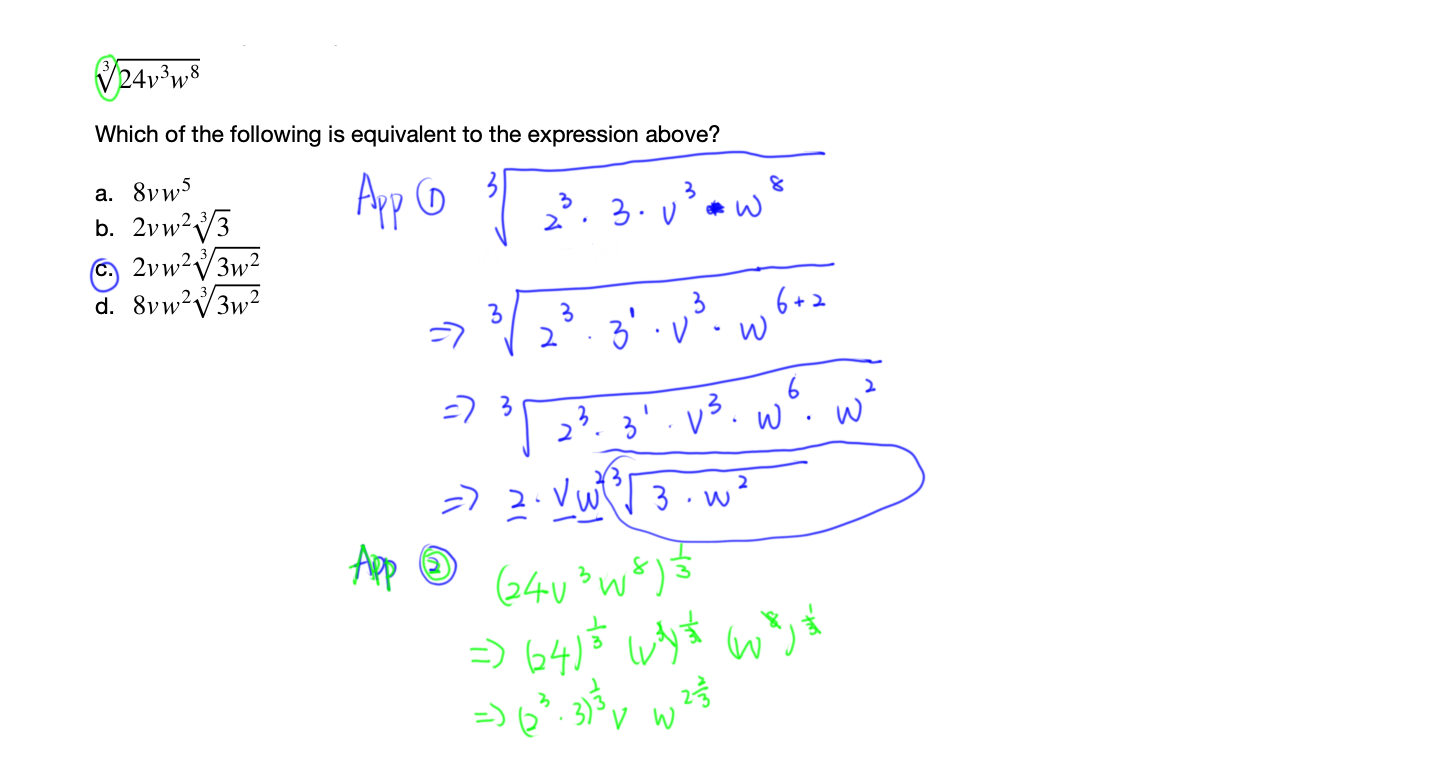 ∛(24v³w⁸)
Which of the following is equivalent to the expression above?
a. 8vw⁵
b. 2vw²∛3
c. 2vw²∛(3w²)
d. 8vw²∛(3w²)
App ① ∛(2³ · 3 · v³ · w⁸)
=> ∛(2³ · 3¹ · v³ · w⁶⁺²)
=> ∛(2³ · 3¹ · v³ · w⁶ · w²)
=> 2 · vw² ∛(3 · w²)
App ② (24v³w⁸)^(1/3)
=> (24)^(1/3) (v³)^(1/3) (w⁸)^(1/3)
=> (2³ · 3)^(1/3) v w^(2 2/3)